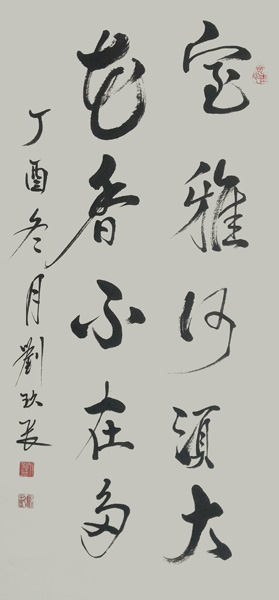 室雅何須大
花香不在多
丁酉冬月劉玖長